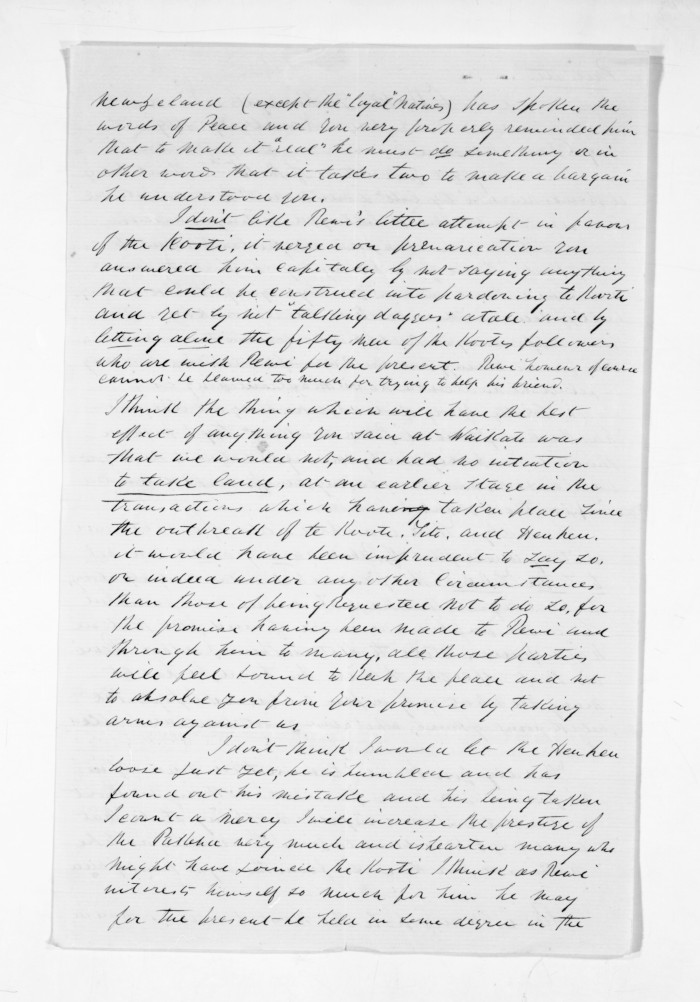 New Zeland (except the "loyal" Natives) has spoken the
words of Peace and you very properly reminded him
that to make it "real" he must do something or in
other words that it takes two to make a bargain
he understood you.
I don't like Rewi's little attempt in favour
of the Kooti, it verged on prevarication you
answered him capitaley by not saying anything
that could be construed into pardoning te Kooti
and yet by not "talking daggers" atale and by
letting alone the fifty men of the Kooti's followers
who are with Rewi for the present. Rewi however of course
cannot be blamed too much for trying to help his friend.
I think the thing which will have the best
effect of anything you said at Waikato was
that we would not, and had no intention
to take land, at an earlier stage in the
transactions which having taken place since
the outbreak of te Kooti, Tito, and Heuheu.
it would have been imprudent to say so.
or indeed under any other Circumstances
than those of being requested not to do so, for
the promise having been made to Rewi and
through him to many, all those parties
will feel bound to keep the peace and not
to absolve you from your promise by taking
arms against us
I don't think I would let the Heuheu
loose just yet, he is humbled and has
found out his mistake and his being taken
I count a mercy I will increase the prestige of
the Pakeha very much and is hearten many who
might have joined the Kooti I think as Rewi
interests himself so much for him he may
for the present be held in some degree in the